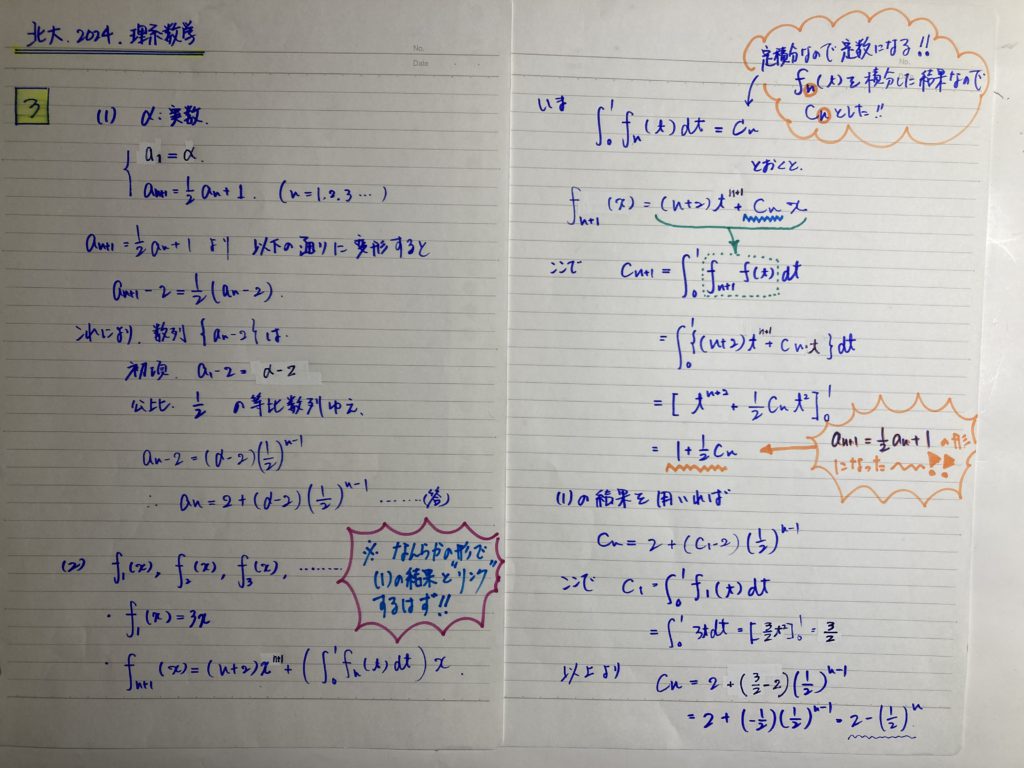 北大. 2024. 理系数学
No.
Date
3
(1) α: 実数.
a₁ = α.
aₙ₊₁ = 1/2 aₙ + 1. (n = 1.2.3 …)
aₙ₊₁ = 1/2 aₙ + 1 より 以下の通りに変形すると
aₙ₊₁ - 2 = 1/2 (aₙ - 2).
これにより、数列 {aₙ - 2} は
初項 a₁ - 2 = α - 2
公比. 1/2 の等比数列ゆえ.
aₙ - 2 = (α - 2)(1/2)ⁿ⁻¹
∴ aₙ = 2 + (α - 2)(1/2)ⁿ⁻¹ ……(答)
(2) f₁(x), f₂(x), f₃(x), ……
・ f₁(x) = 3x
・ fₙ₊₁(x) = (n+2)xⁿ⁺¹ + (∫₀¹ fₙ(t) dt) x.
※ なんらかの形で
(1)の結果と"リンク"
するはず!!
No.
定積分なので定数になる!!
fₙ(t)を積分した結果なので
Cₙとした!!
いま
∫₀¹ fₙ(t) dt = Cₙ
とおくと.
fₙ₊₁(x) = (n+2)tⁿ⁺¹ + Cₙ x
ここで Cₙ₊₁ = ∫₀¹ fₙ₊₁ f(t) dt
= ∫₀¹ {(n+2)tⁿ⁺¹ + Cₙ・t} dt
= [ tⁿ⁺² + 1/2 Cₙ t² ]₀¹
= 1 + 1/2 Cₙ
aₙ₊₁ = 1/2 aₙ + 1 の形
になった〜〜!!
(1)の結果を用いれば
Cₙ = 2 + (C₁ - 2)(1/2)ⁿ⁻¹
ここで C₁ = ∫₀¹ f₁(t) dt
= ∫₀¹ 3t dt = [3/2 t²]₀¹ = 3/2
以上より Cₙ = 2 + (3/2 - 2)(1/2)ⁿ⁻¹
= 2 + (-1/2)(1/2)ⁿ⁻¹ = 2 - (1/2)ⁿ